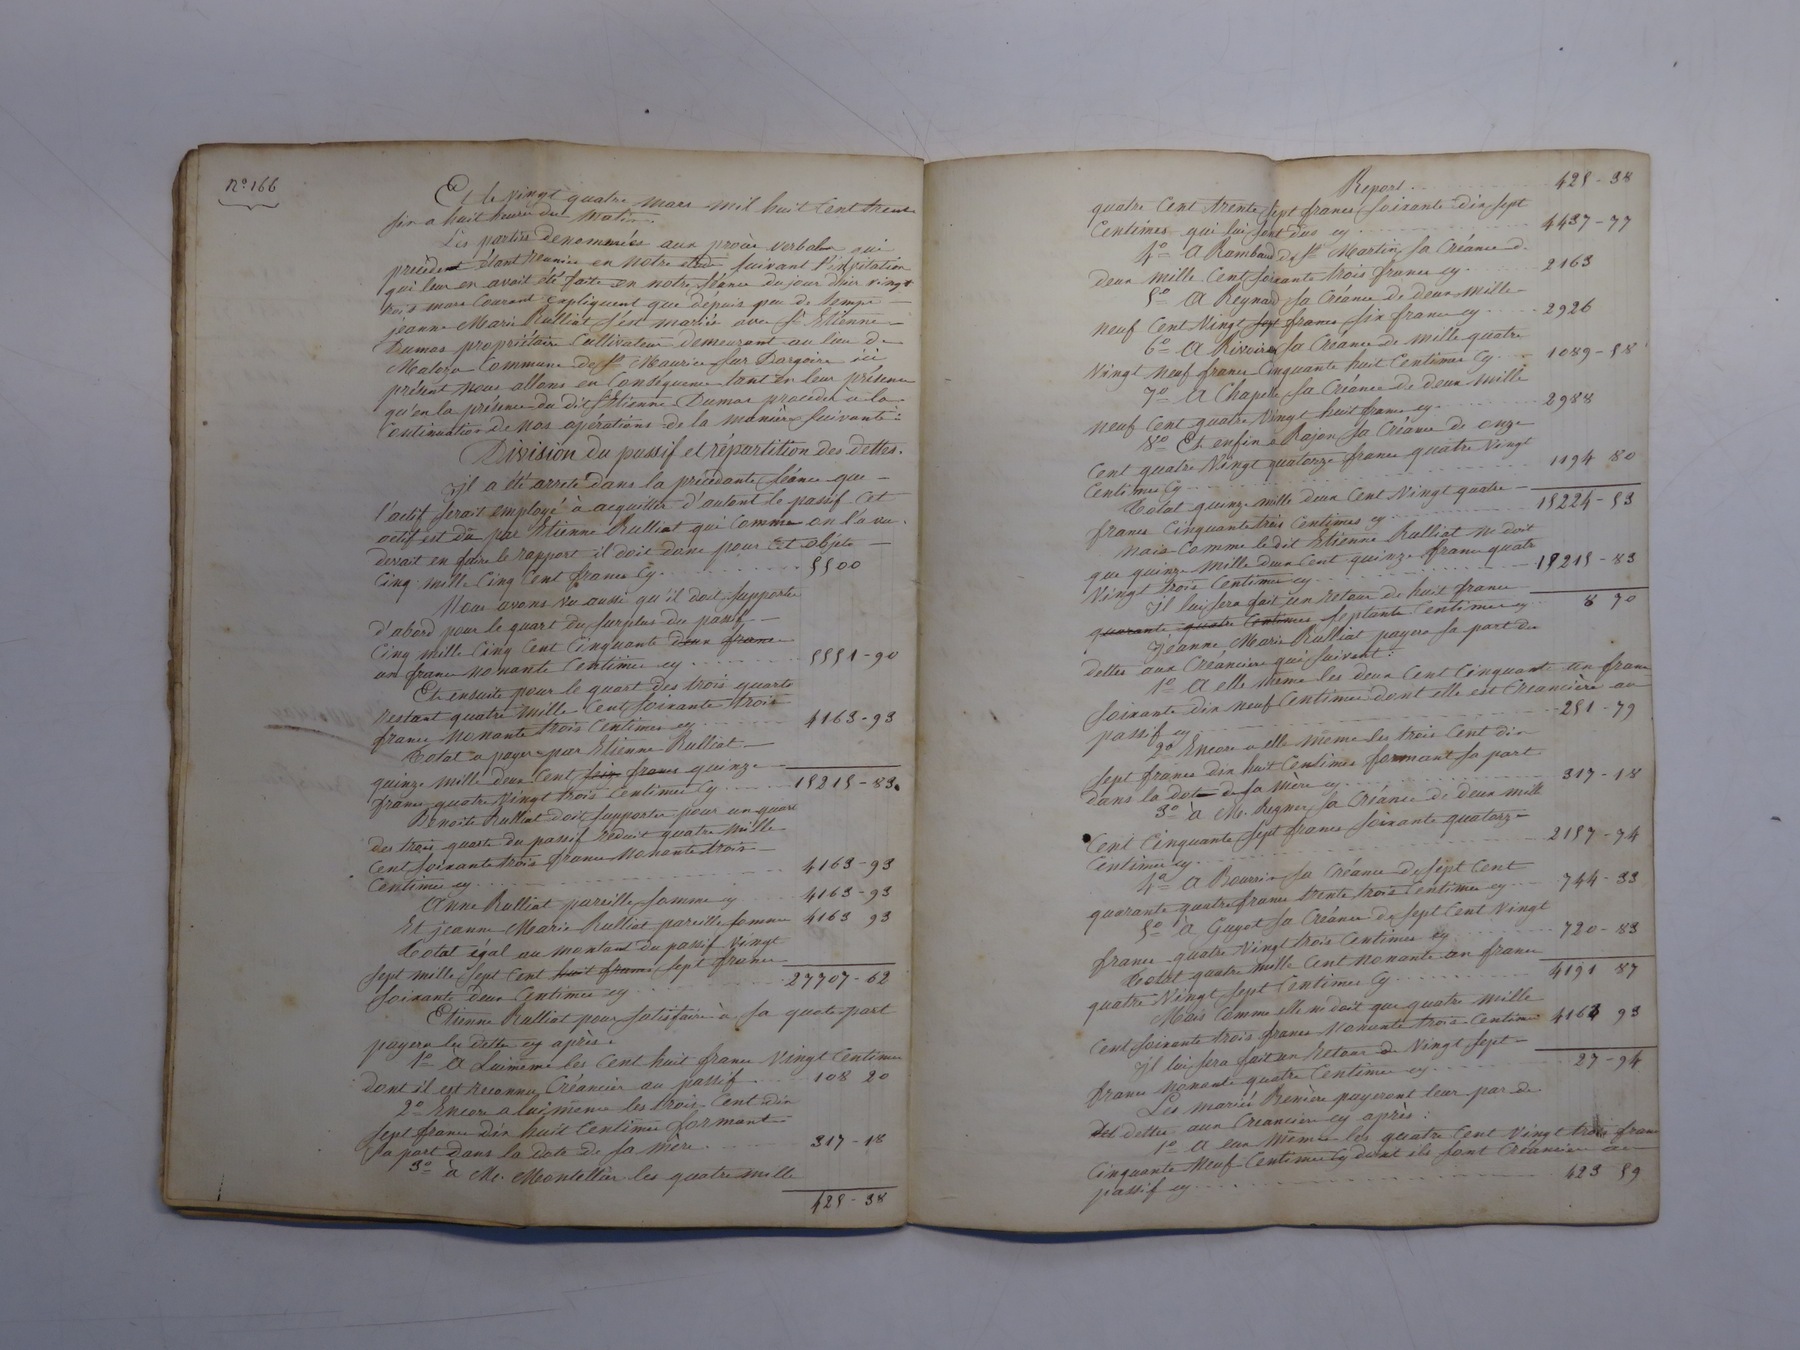 n.o 166
Et le vingt quatre mars mil huit Cent trente
six a huit heures du matin.
Les parties denommées aux procès verbal qui
précédent étant réunies en notre étude suivant l'invitation
qui leur en avait été faite en notre séance du jour d'hier vingt
trois mars Courant expliquent que depuis peu de temps
jeanne Marie Rulliat s'est mariée avec Sr Etienne
Dumas propriétaire Cultivateur demeurant au lieu de
Commune de St Maurice sur Dargoire ici
présent nous allons en Conséquence tant en leur présence
qu'en la présence du dit Etienne Dumas procéder à la
Continuation de nos opérations de la manière suivante :
Division du passif et répartition des dettes.
il a été arrêté dans la précédante séance que
l'actif serait employé à acquitter d'autant le passif Cet
actif est dû par Etienne Rulliat qui Comme on l'a vu
devait en faire le rapport il doit donc pour cet objet
Cinq mille Cinq Cent francs Cy 5500
Nous avons vu aussi qu'il doit supporter
d'abord pour le quart du surplus du passif
Cinq mille Cinq Cent Cinquante deux francs
un franc nonante Centimes cy 5551-90
Et ensuite pour le quart des trois quarts
restant quatre mille Cent soixante trois
francs nonante trois Centimes cy 4163-93
Total a payer par Etienne Rulliat
quinze mille deux Cent six francs quinze
francs quatre vingt trois Centimes Cy 15215-83
Benoite Rulliat doit supporter pour un quart
des trois quarts du passif réduit quatre mille
Cent soixante trois francs nonante trois
Centimes cy 4163-93
Anne Rulliat pareille somme cy 4163-93
Et jeanne Marie Rulliat pareille somme 4163 93
Total égal au montant du passif vingt
sept mille sept Cent huit francs sept francs
soixante deux Centimes cy 27707-62
Etienne Rulliat pour satisfaire à sa quote part
payera les dettes cy après :
1o A Luimême les Cent huit francs Vingt Centimes
dont il est reconnu Créancier au passif 108 20
2o Encore a lui même les trois Cent dix
sept francs dix huit Centimes formant
sa part dans la dote de sa mère 317-18
3o à Me. Montellier les quatre mille
425-38
Report 425-38
quatre Cent trente sept francs soixante dix sept
Centimes qui lui sont dus cy 4437-77
4o A Rambaud de St Martin sa Créance de
deux mille Cent soixante trois francs cy 2163
5o A Reynard sa Créance de deux mille
neuf Cent Vingt sept francs six francs cy 2926
6o A Rivoire sa Créance de mille quatre
Vingt neuf francs Cinquante huit Centimes Cy 1089-58
7o A Chapelle sa Créance de deux mille
neuf Cent quatre Vingt huit francs cy 2988
8o Et enfin a Rajon sa Créance de onze
Cent quatre Vingt quatorze francs quatre Vingt
Centimes Cy 1194 80
Total quinze mille deux Cent Vingt quatre
francs Cinquante trois Centimes cy 15224-53
Mais Comme le dit Etienne Rulliat ne doit
que quinze mille deux Cent quinze francs quatre
Vingt trois Centimes cy 15215-83
il lui sera fait un retour de huit francs
quarante quatre Centimes septante Centimes cy 8 70
jeanne Marie Rulliat payera sa part des
dettes aux Créanciers qui suivent :
1o A elle même les deux Cent Cinquante un francs
soixante dix neuf Centimes dont elle est Créancière au
passif cy 251-79
2o Encore a elle même les trois Cent dix
sept francs dix huit Centimes formant sa part
dans la dote de sa mère cy 317-18
3o à M. Regner sa Créance de deux mille
Cent Cinquante sept francs soixante quatorze
Centimes cy 2157-74
4o A Bourrin sa Créance de sept Cent
quarante quatre francs trente trois Centimes cy 744-33
5o à Guyot sa Créance de sept Cent Vingt
francs quatre Vingt trois Centimes cy 720-83
Total quatre mille Cent nonante un francs
quatre Vingt sept Centimes Cy 4191 87
Mais Comme elle ne doit que quatre mille
Cent soixante trois francs Nonante trois Centimes 4163 93
il lui sera fait un Retour de Vingt sept
francs nonante quatre Centimes cy 27-94
Les mariés payeront leur par de
dettes aux Créanciers cy après :
1o A eux mêmes les quatre Cent Vingt trois francs
Cinquante Neuf Centimes Cy dont ils sont Créanciers au
passif cy 423 59